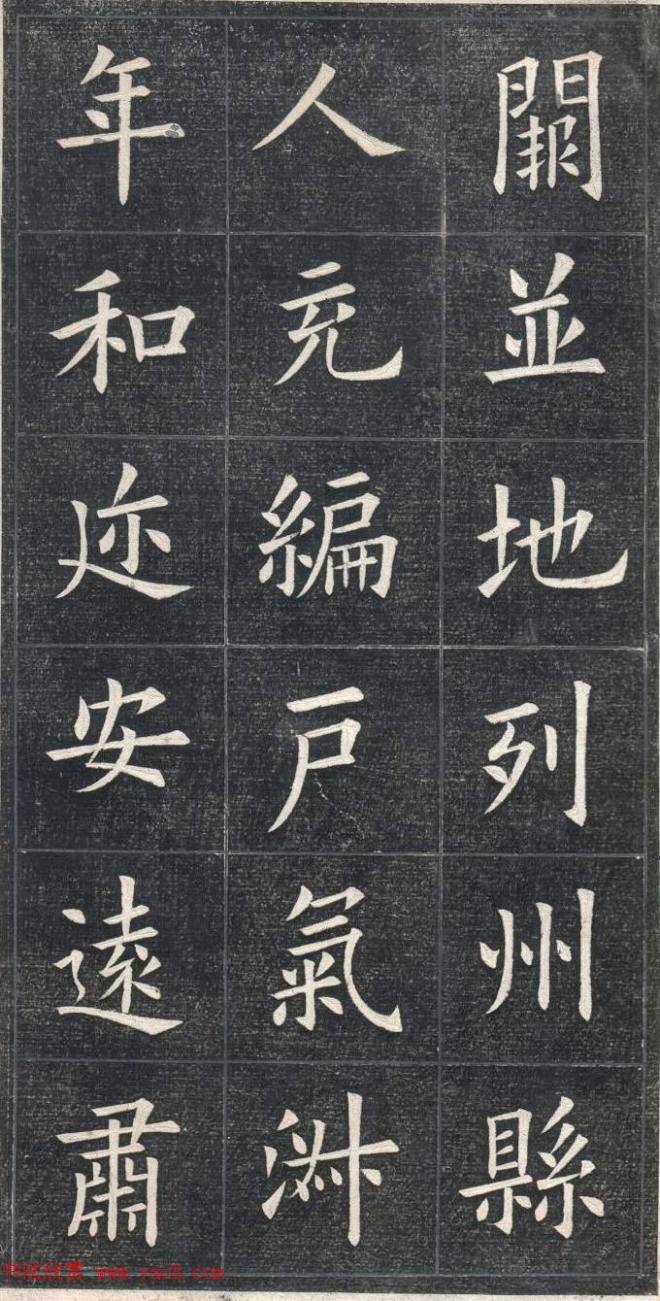 闕並地列州縣
人充編戸氣淑
年和迩安遠肅
书法欣赏 www.yac8.com